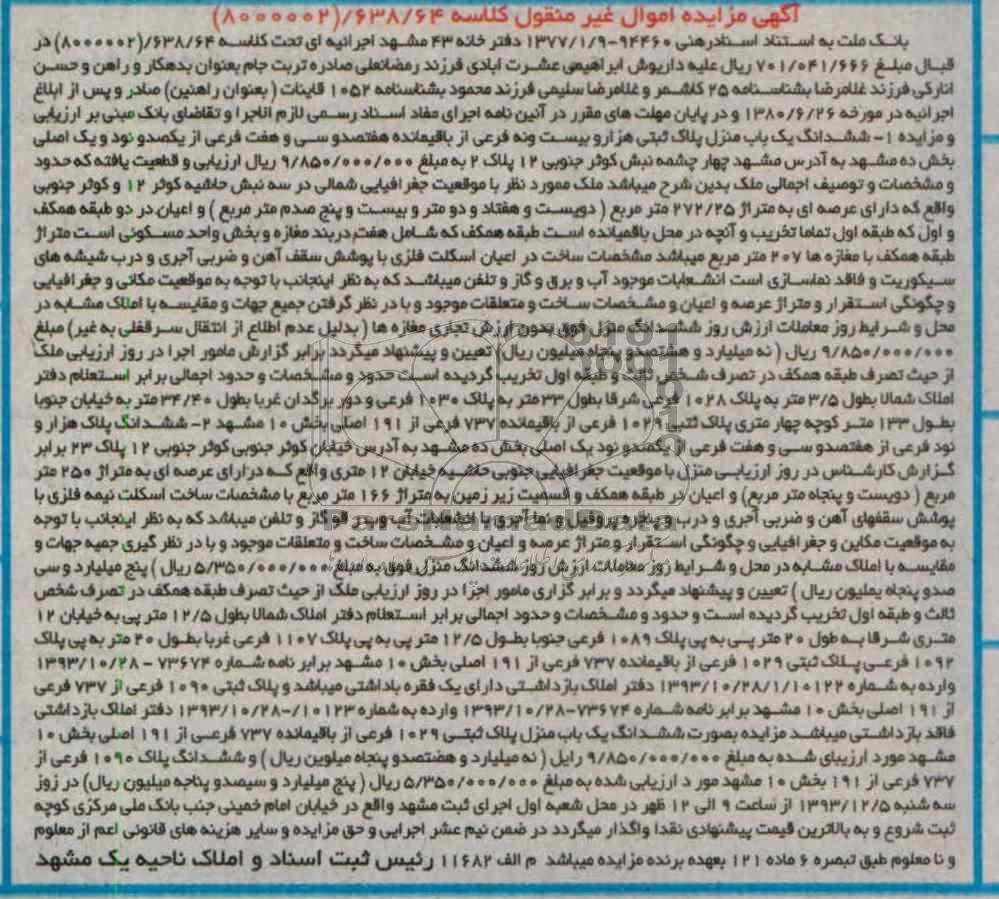 آگهی مزایده اموال غیر منقول کلاسه ۶۳۸/۶۴/(۸۰۰۰۰۰۲)
بانک ملت به استناد اسنادرهنی ۹۴۴۶۰-۱۳۷۷/۱/۹ دفتر خانه ۴۳ مشهد اجرائیه ای تحت کلاسه ۶۳۸/۶۴/(۸۰۰۰۰۰۲) در
قبال مبلغ ۷۰۱/۰۴۱/۶۶۶ ریال علیه داریوش ابراهیمی عشرت ابادی فرزند رمضانعلی صادره تربت جام بعنوان بدهکار و راهن و حسن
انارکی فرزند غلامرضا بشناسنامه ۲۵ کاشمر و غلامرضا سلیمی فرزند محمود بشناسنامه ۱۰۵۲ قاینات ( بعنوان راهنین) صادر و پس از ابلاغ
اجرائیه در مورخه ۱۳۸۰/۶/۲۶ و در پایان مهلت های مقرر در آئین نامه اجرای مفاد اسناد رسمی لازم الاجرا و تقاضای بانک مبنی بر ارزیابی
و مزایده ۱- ششدانگ یک باب منزل پلاک ثبتی هزارو بیست ونه فرعی از باقیمانده هفتصدو سی و هفت فرعی از یکصدو نود و یک اصلی
بخش ده مشهد به آدرس مشهد چهار چشمه نبش کوثر جنوبی ۱۲ پلاک ۲ به مبلغ ۹/۸۵۰/۰۰۰/۰۰۰ ریال ارزیابی و قطعیت یافته که حدود
و مشخصات و توصیف اجمالی ملک بدین شرح میباشد ملک ممورد نظر با موقعیت جغرافیایی شمالی در سه نبش حاشیه کوثر ۱۲ و کوثر جنوبی
واقع که دارای عرصه ای به متراژ ۲۷۲/۲۵ متر مربع ( دویست و هفتاد و دو متر و بیست و پنج صدم متر مربع ) و اعیان در دو طبقه همکف
و اول که طبقه اول تماما تخریب و آنچه در محل باقمیانده است طبقه همکف که شامل هفت دربند مغازه و بخش واحد مسکونی است متراژ
طبقه همکف با مغازه ها ۲۰۷ متر مربع میباشد مشخصات ساخت در اعیان اسکلت فلزی با پوشش سقف آهن و ضربی آجری و درب شیشه های
سیکوریت و فاقد نماسازی است انشعابات موجود آب و برق و گاز و تلفن میباشد که به نظر اینجانب با توجه به موقعیت مکانی و جغرافیایی
و چگونگی استقرار و متراژ عرصه و اعیان و مشخصات ساخت و متعلقات موجود و با در نظر گرفتن جمیع جهات و مقایسه با املاک مشابه در
محل و شرایط روز معاملات ارزش روز ششدانگ منزل فوق بدون ارزش تجاری مغازه ها ( بدلیل عدم اطلاع از انتقال سرقفلی به غیر) مبلغ
۹/۸۵۰/۰۰۰/۰۰۰ ریال ( نه میلیارد و هشتصدو پنجاه میلیون ریال) تعیین و پیشنهاد میگردد برابر گزارش مامور اجرا در روز ارزیابی ملک
از حیث تصرف طبقه همکف در تصرف شخص ثالث و طبقه اول تخریب گردیده است حدود و مشخصات و حدود اجمالی برابر استعلام دفتر
املاک شمالا بطول ۳/۵ متر به پلاک ۱۰۲۸ فرعی شرقا بطول ۳۳ متر به پلاک ۱۰۳۰ فرعی و دور برگدان غربا بطول ۳۴/۴۰ متر به خیابان جنوبا
بطول ۱۳۳ متر کوچه چهار متری پلاک ثبتی ۱۰۲۹ فرعی از باقیمانده ۷۳۷ فرعی از ۱۹۱ اصلی بخش ۱۰ مشهد ۲- ششدانگ پلاک هزار و
نود فرعی از هفتصدو سی و هفت فرعی از یکصدو نود یک اصلی بخش ده مشهد به آدرس خیابان کوثر جنوبی کوثر جنوبی ۱۲ پلاک ۲۳ برابر
گزارش کارشناس در روز ارزیابی منزل با موقعیت جغرافیایی جنوبی حاشیه خیابان ۱۲ متری واقع که درارای عرصه ای به متراژ ۲۵۰ متر
مربع ( دویست و پنجاه متر مربع) و اعیان در طبقه همکف و قسمیت زیر زمین به متراژ ۱۶۶ متر مربع با مشخصات ساخت اسکلت نیمه فلزی با
پوشش سقفهای آهن و ضربی آجری و درب و پنجره پروفیل و نما آجری با انشعابات آب و برق و گاز و تلفن میباشد که به نظر اینجانب با توجه
به موقعیت مکاین و جغرافیایی و چگونگی استقرار و متراژ عرصه و اعیان و مشخصات ساخت و متعلقات موجود و با در نظر گیری جمیه جهات و
مقایسه با املاک مشابه در محل و شرایط روز معاملات ارزش روز ششدانگ منزل فوق به مبلغ ۵/۳۵۰/۰۰۰/۰۰۰ ریال ) پنج میلیارد و سی
صدو پنجاه یملیون ریال ) تعیین و پیشنهاد میگردد و برابر گزاری مامور اجرا در روز ارزیابی ملک از حیث تصرف طبقه همکف در تصرف شخص
ثالث و طبقه اول تخریب گردیده است و حدود و مشخصات و حدود اجمالی برابر استعلام دفتر املاک شمالا بطول ۱۲/۵ متر پی به خیابان ۱۲
متری شرقا به طول ۲۰ متر پی به پی پلاک ۱۰۸۹ فرعی جنوبا بطول ۱۲/۵ متر پی به پی پلاک ۱۱۰۷ فرعی غربا بطول ۲۰ متر به پی پلاک
۱۰۹۲ فرعی پلاک ثبتی ۱۰۲۹ فرعی از باقیمانده ۷۳۷ فرعی از ۱۹۱ اصلی بخش ۱۰ مشهد برابر نامه شماره ۷۳۶۷۴ – ۱۳۹۳/۱۰/۲۸
وارده به شماره ۱۳۹۳/۱۰/۲۸/۱/۱۰۱۲۲ دفتر املاک بازداشتی دارای یک فقره باداشتی میباشد و پلاک ثبتی ۱۰۹۰ فرعی از ۷۳۷ فرعی
از ۱۹۱ اصلی بخش ۱۰ مشهد برابر نامه شماره ۷۳۶۷۴-۱۳۹۳/۱۰/۲۸ وارده به شماره ۱۰۱۲۳/-۱۳۹۳/۱۰/۲۸ دفتر املاک بازداشتی
فاقد بازداشتی میباشد مزایده بصورت ششدانگ یک باب منزل پلاک ثبتی ۱۰۲۹ فرعی از باقیمانده ۷۳۷ فرعی از ۱۹۱ اصلی بخش ۱۰
مشهد مورد ارزیبای شده به مبلغ ۹/۸۵۰/۰۰۰/۰۰۰ رایل ( نه میلیارد و هفتصدو پنجاه میلوین ریال ) و ششدانگ پلاک ۱۰۹۰ فرعی از
۷۳۷ فرعی از ۱۹۱ بخش ۱۰ مشهد مور د ارزیابی شده به مبلغ ۵/۳۵۰/۰۰۰/۰۰۰ ریال ( پنج میلیارد و سیصدو پناجه میلیون ریال) در زوز
سه شنبه ۱۳۹۳/۱۲/۵ از ساعت ۹ الی ۱۲ ظهر در محل شعبه اول اجرای ثبت مشهد واقع در خیابان امام خمینی جنب بانک ملی مرکزی کوچه
ثبت شروع و به بالاترین قیمت پیشنهادی نقدا واگذار میگردد در ضمن نیم عشر اجرایی و حق مزایده و سایر هزینه های قانونی اعم از معلوم
و نا معلوم طبق تبصره ۶ ماده ۱۲۱ بعهده برنده مزایده میباشد م الف ۱۱۶۸۲ رئیس ثبت اسناد و املاک ناحیه یک مشهد